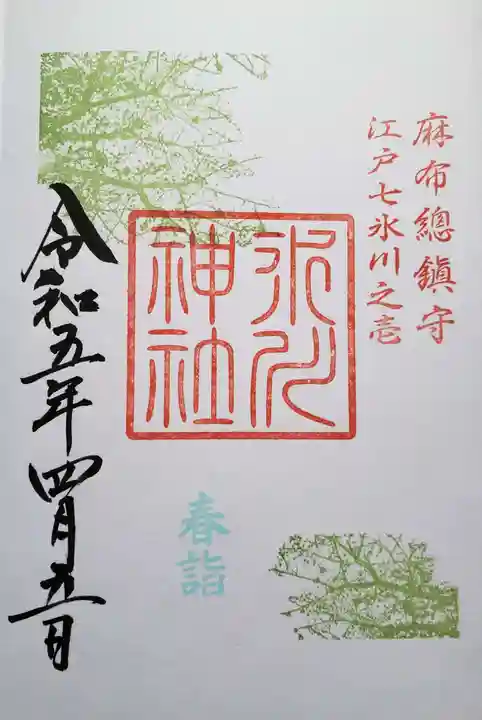 麻布總鎮守
江戸七氷川之壱
氷川
神社
春詣
令和五年四月五日